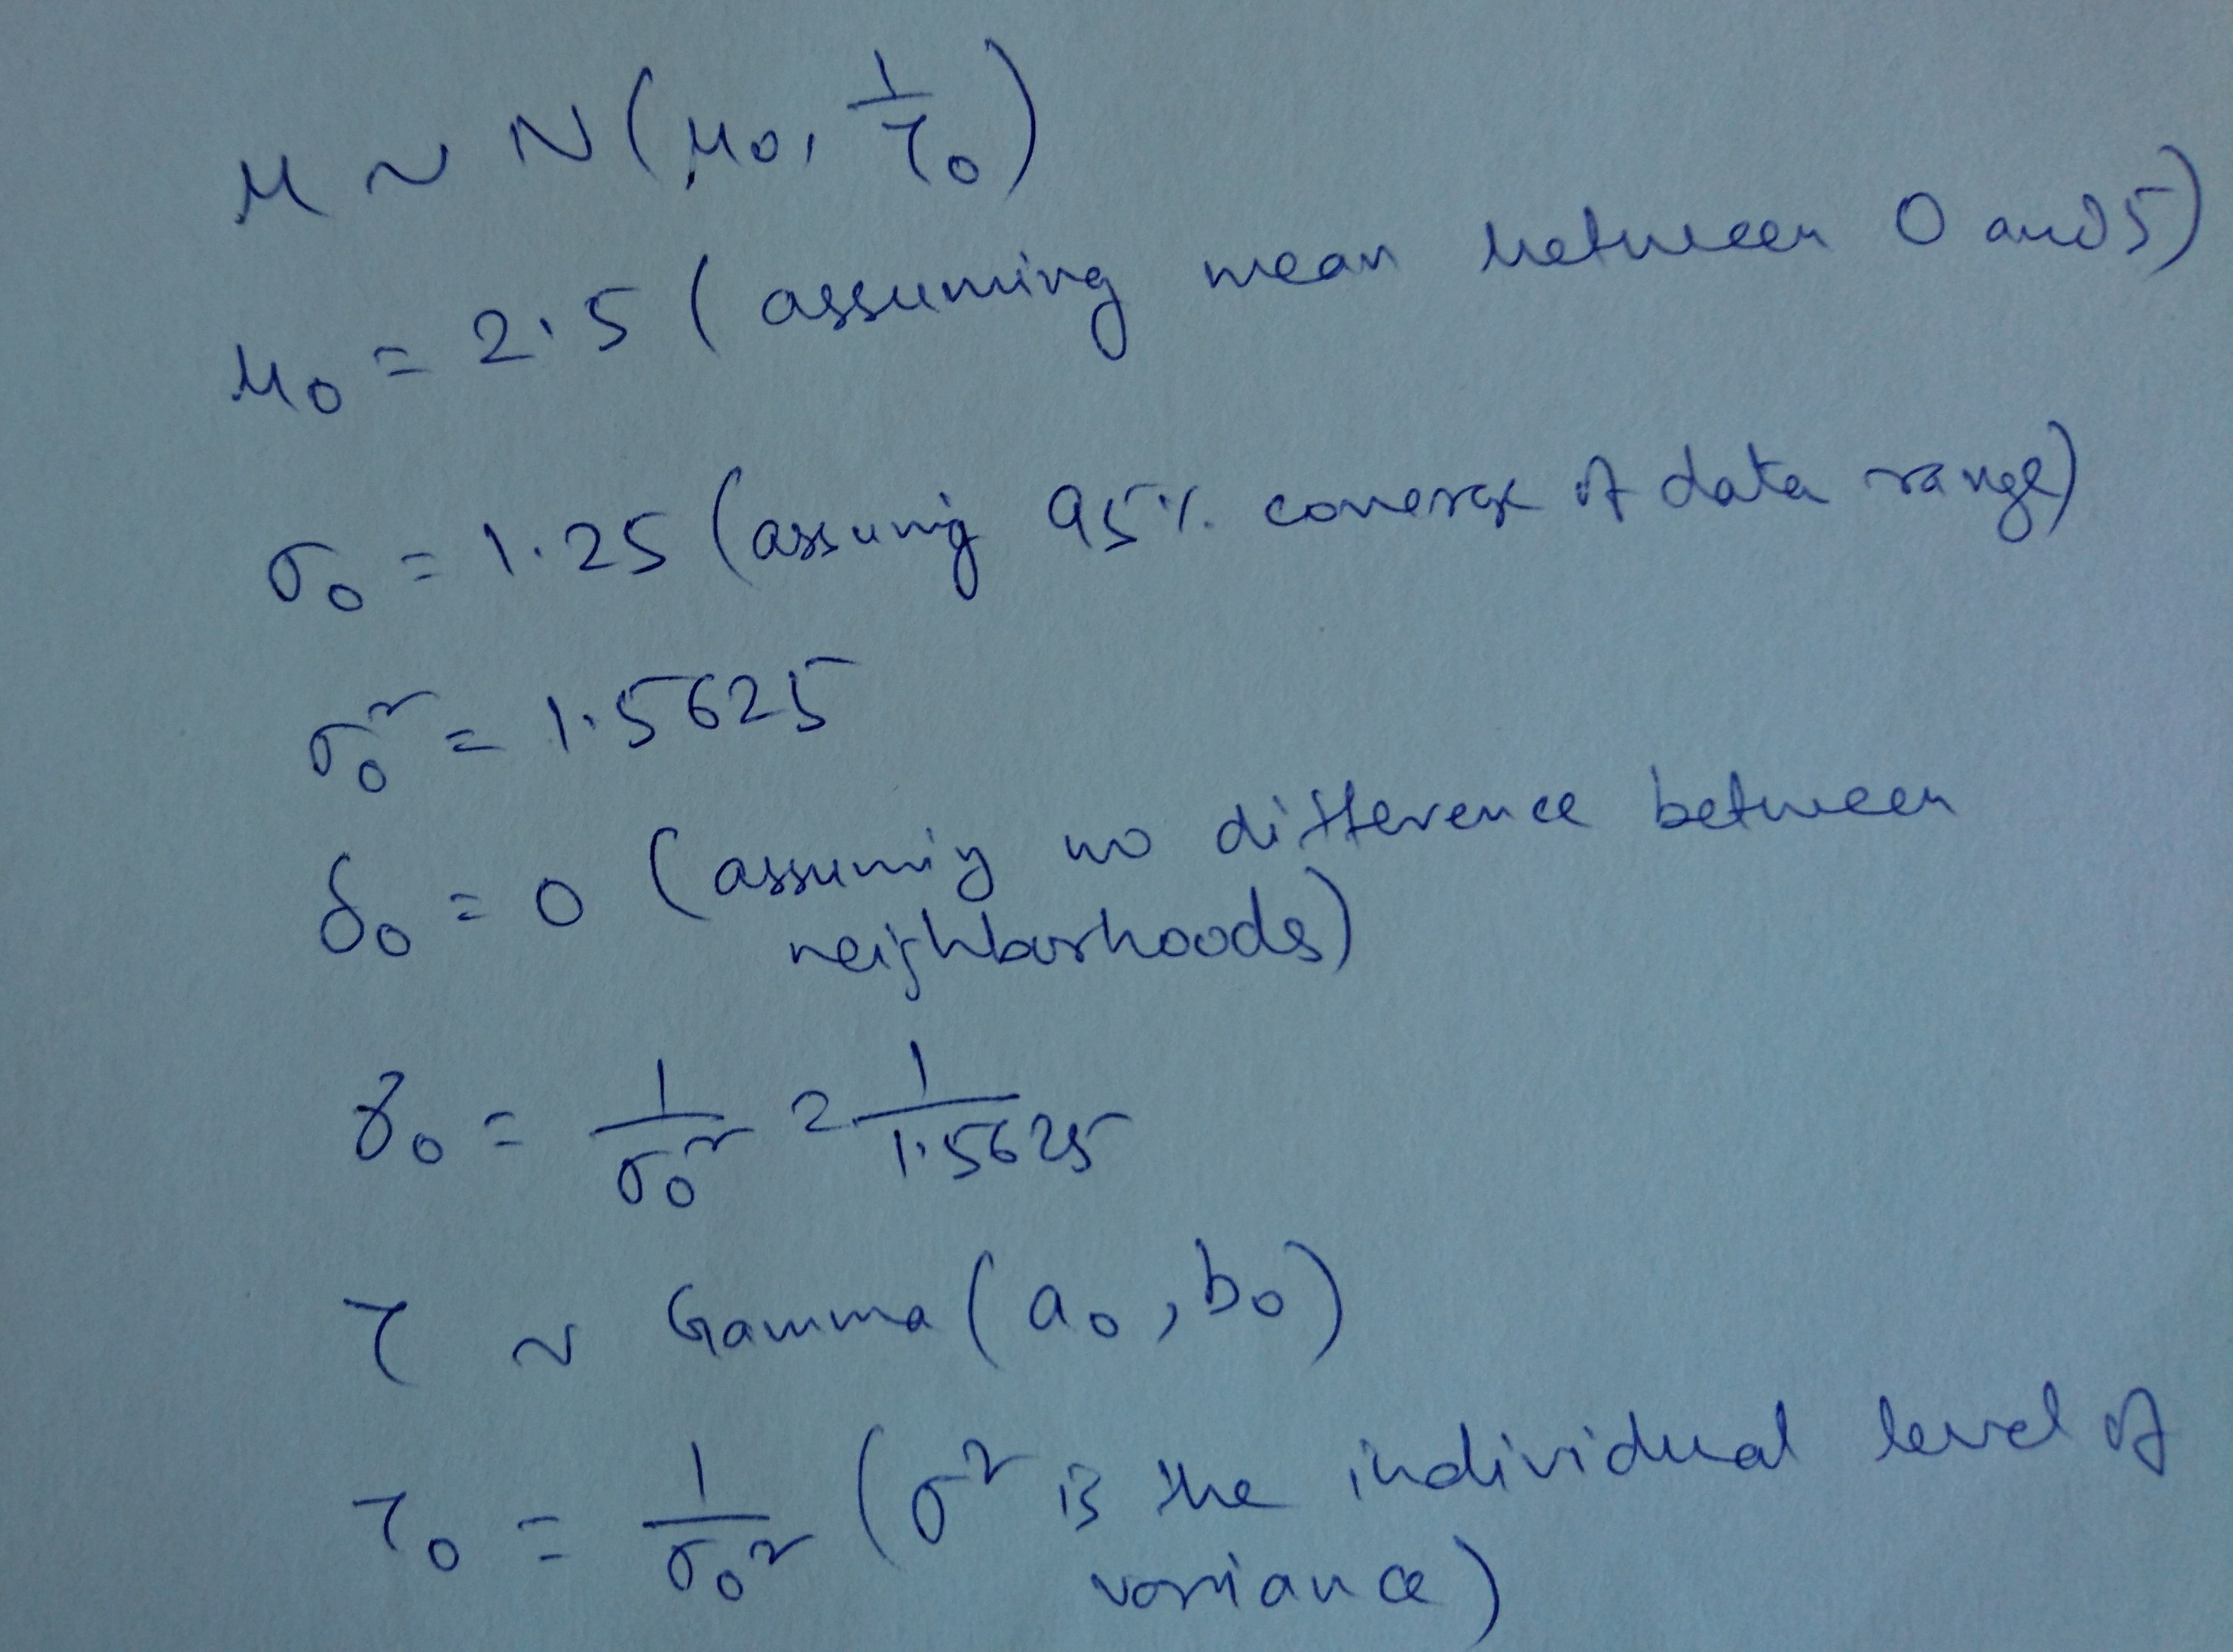 μ ~ N(μ₀, 1/τ₀)
μ₀ = 2.5 (assuming mean between 0 and 5)
σ₀ = 1.25 (assuming 95% coverage of data range)
σ₀² = 1.5625
δ₀ = 0 (assuming no difference between
neighborhoods)
γ₀ = 1/σ₀² = 1/1.5625
τ ~ Gamma(a₀, b₀)
τ₀ = 1/σ₀² (σ² is the individual level of
variance)